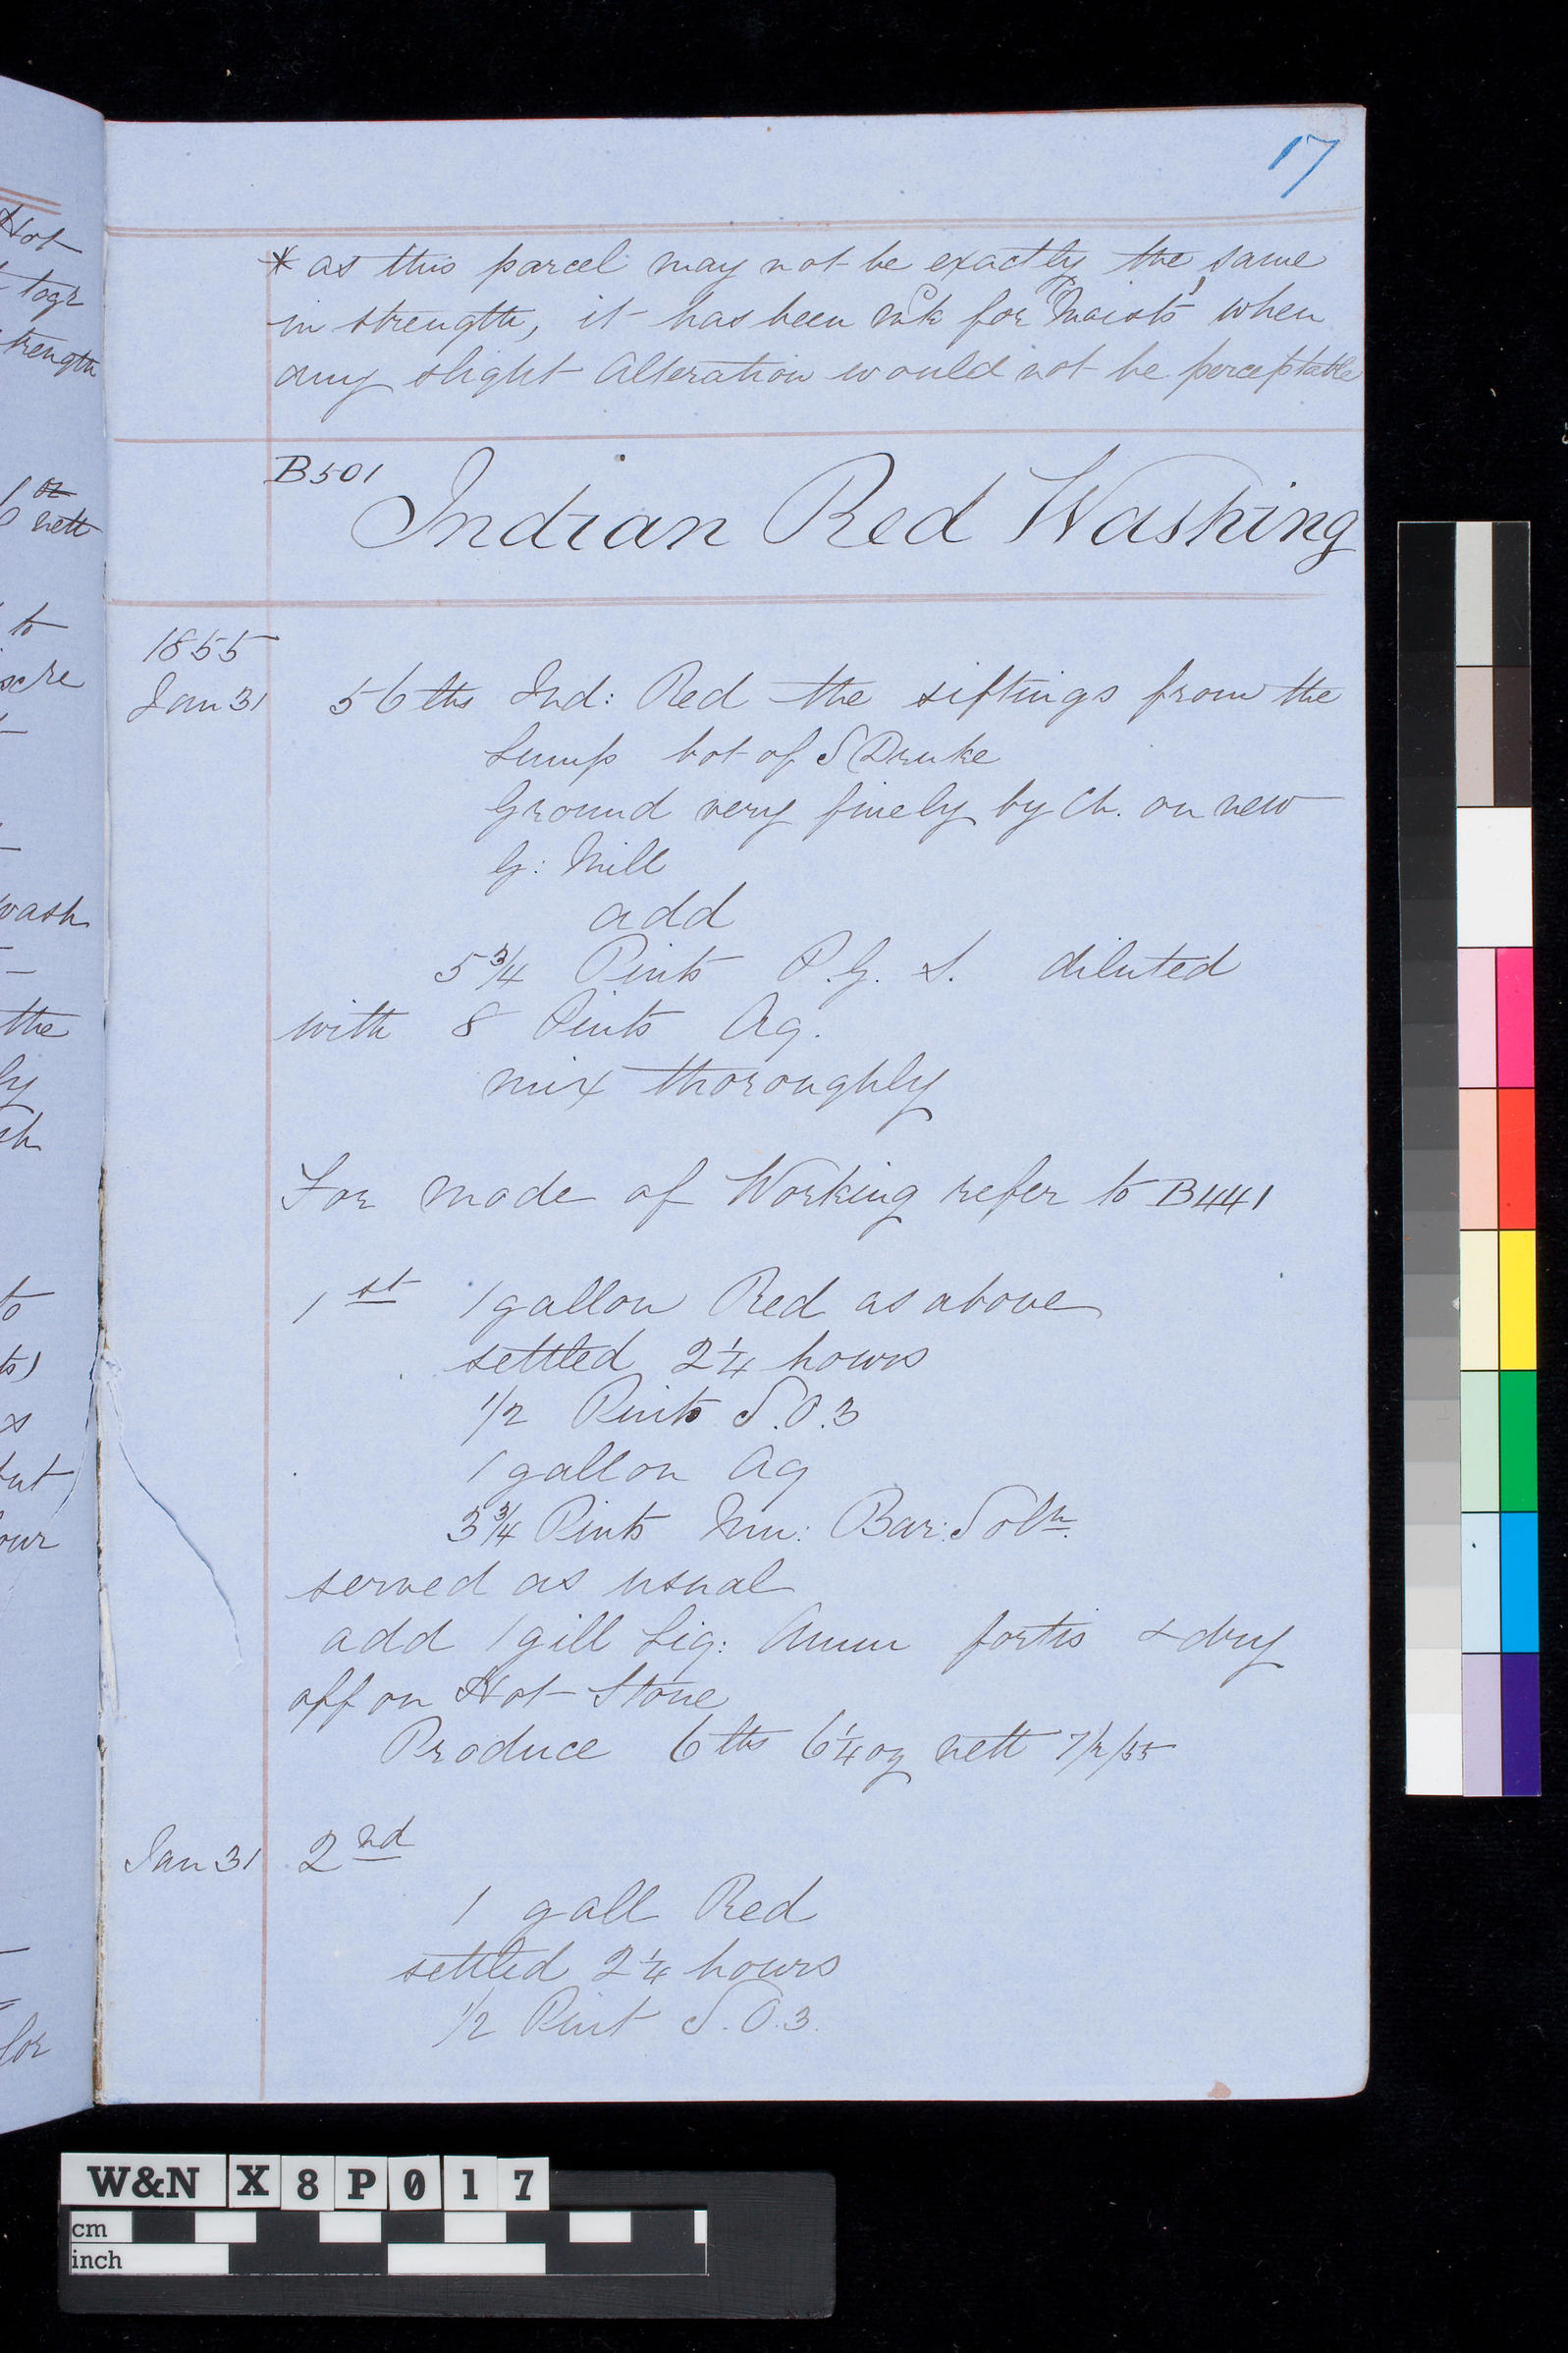 17
* as this parcel may not be exactly the same
in strength, it has been mk for "Moists" when
any slight alteration would not be perceptable
B501
Indian Red Washing
1855
Jan 31 56 lbs Ind: Red the siftings from the
Lump bot of S Druke
Ground very finely by Ch. on new
G: Mill
add
5 3/4 Pints P. G. S. diluted
with 8 Pints Aq.
mix thoroughly
For mode of Working refer to B441
1st 1 gallon Red as above
settled 2 1/4 hours
1/2 Pints S.O.3
1 gallon Aq
3 3/4 Pints Mu: Bar: Soln.
served as usual
add 1 gill Liq: Amm fortis & dry
off on Hot Stone
Produce 6 lbs 6 1/4 oz nett 7/2/55
Jan 31 2nd
1 gall Red
settled 2 1/4 hours
1/2 Pint S.O.3.
Hot
togr
trength
oz
nett
to
wash
the
ly
sh
to
but
our
for
W&N X8P017
cm
inch